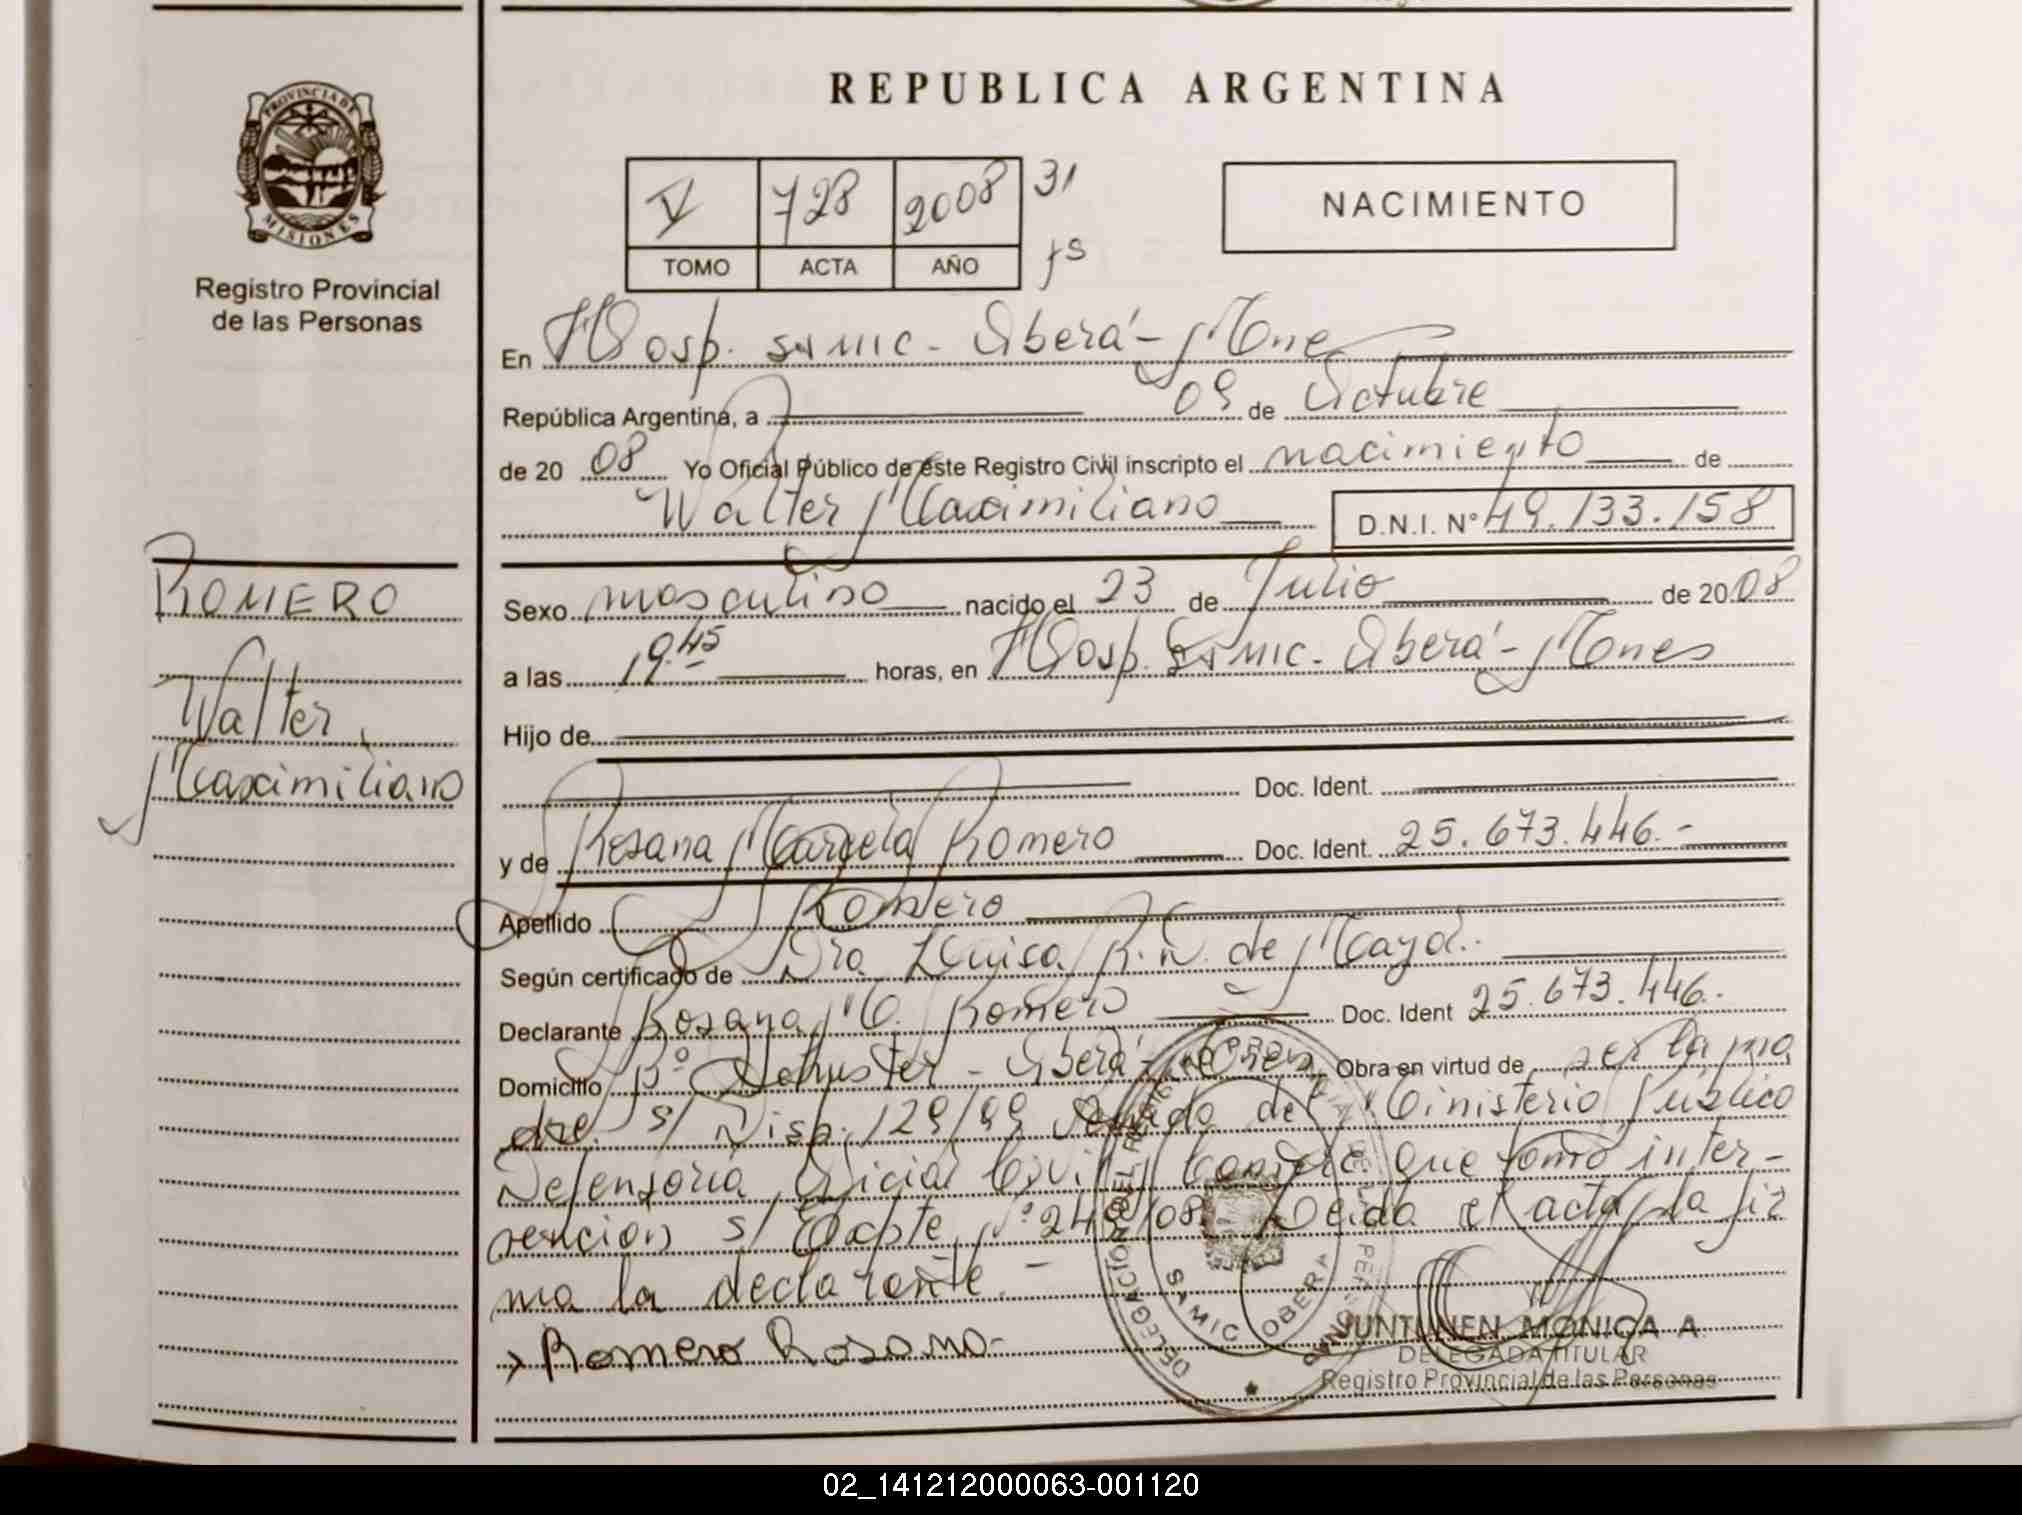 REPUBLICA ARGENTINA
PROVINCIA DE
MISIONES
Registro Provincial
de las Personas
V 728 2008 31
TOMO ACTA AÑO fs
NACIMIENTO
En Hosp. SAMIC - Oberá - Mnes
República Argentina, a 09 de Octubre
de 20 08 Yo Oficial Público de este Registro Civil inscripto el nacimiento de
Walter Maximiliano D.N.I. N° 49.133.158
ROMERO
Walter
Maximiliano
Sexo masculino nacido el 23 de Julio de 20 08
a las 19.45 horas, en Hosp. SAMIC - Oberá - Mnes
Hijo de
Doc. Ident.
y de Rosana Marcela Romero Doc. Ident. 25.673.446.-
Apellido Romero
Según certificado de Dra Luisa R. N. de
Declarante Rosana M. Romero Doc. Ident 25.673.446.
Domicilio B° Schuster - Oberá - Mnes Obra en virtud de ser la ma
dre. s/ Disp. 129/99 del Ministerio Público
Defensoría Oficial Civil que tomó inter-
vención s/ Expte N° /08. Leída el acta, la fir
ma la declarante. -
Romero Rosana-
SAMIC OBERA
JUNTUNEN MONICA A
DELEGADA TITULAR
Registro Provincial de las Personas
02_141212000063-001120